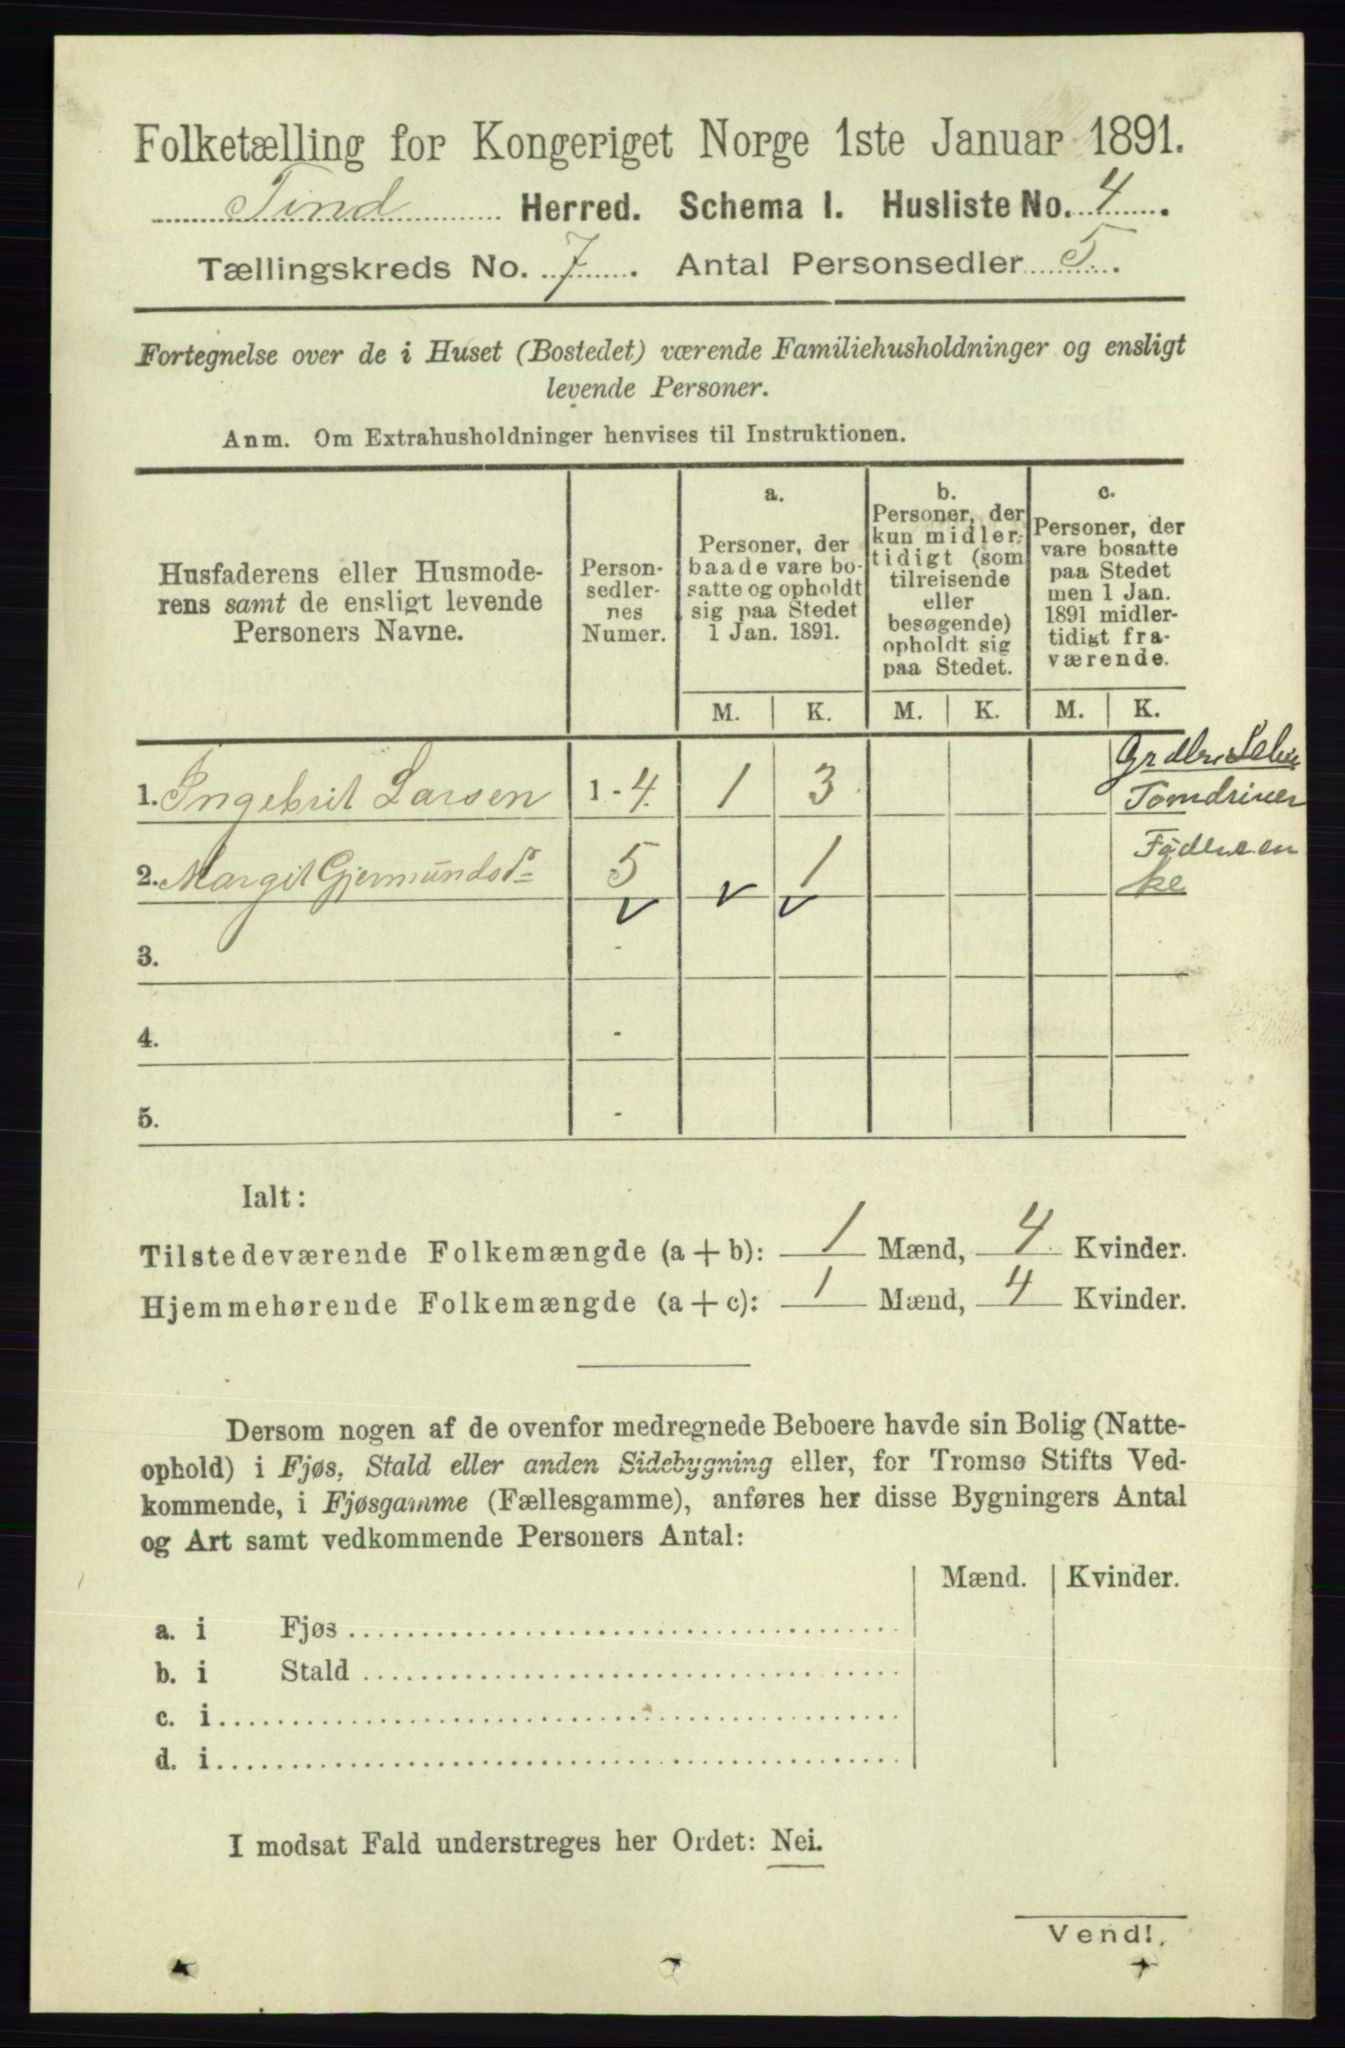 Folketælling for Kongeriget Norge 1ste Januar 1891.
Tind Herred. Schema I. Husliste No. 4.
Tællingskreds No. 7. Antal Personsedler 5.
Fortegnelse over de i Huset (Bostedet) værende Familiehusholdninger og ensligt
levende Personer.
Anm. Om Extrahusholdninger henvises til Instruktionen.
Husfaderens eller Husmode-
rens samt de ensligt levende
Personers Navne.
Person-
sedler-
nes
Numer.
a.
Personer, der
baade vare bo-
satte og opholdt
sig paa Stedet
1 Jan. 1891.
b.
Personer, der
kun midler-
tidigt (som
tilreisende
eller
besøgende)
opholdt sig
paa Stedet.
c.
Personer, der
vare bosatte
paa Stedet
men 1 Jan.
1891 midler-
tidigt fra-
værende.
M. K. M. K. M. K.
1. Ingebrit Larsen 1 - 4. 1 3
2. Margit Gjermundsd 5 1
3. -
4. -
5. -
Ialt:
Tilstedeværende Folkemængde (a + b): 1 Mænd, 4 Kvinder.
Hjemmehørende Folkemængde (a + c): 1 Mænd, 4 Kvinder.
Dersom nogen af de ovenfor medregnede Beboere havde sin Bolig (Natte-
ophold) i Fjøs, Stald eller anden Sidebygning eller, for Tromsø Stifts Ved-
kommende, i Fjøsgamme (Fællesgamme), anføres her disse Bygningers Antal
og Art samt vedkommende Personers Antal:
Mænd. Kvinder.
a. i Fjøs
b. i Stald
c. i
d. i
I modsat Fald understreges her Ordet: Nei.
Vend!